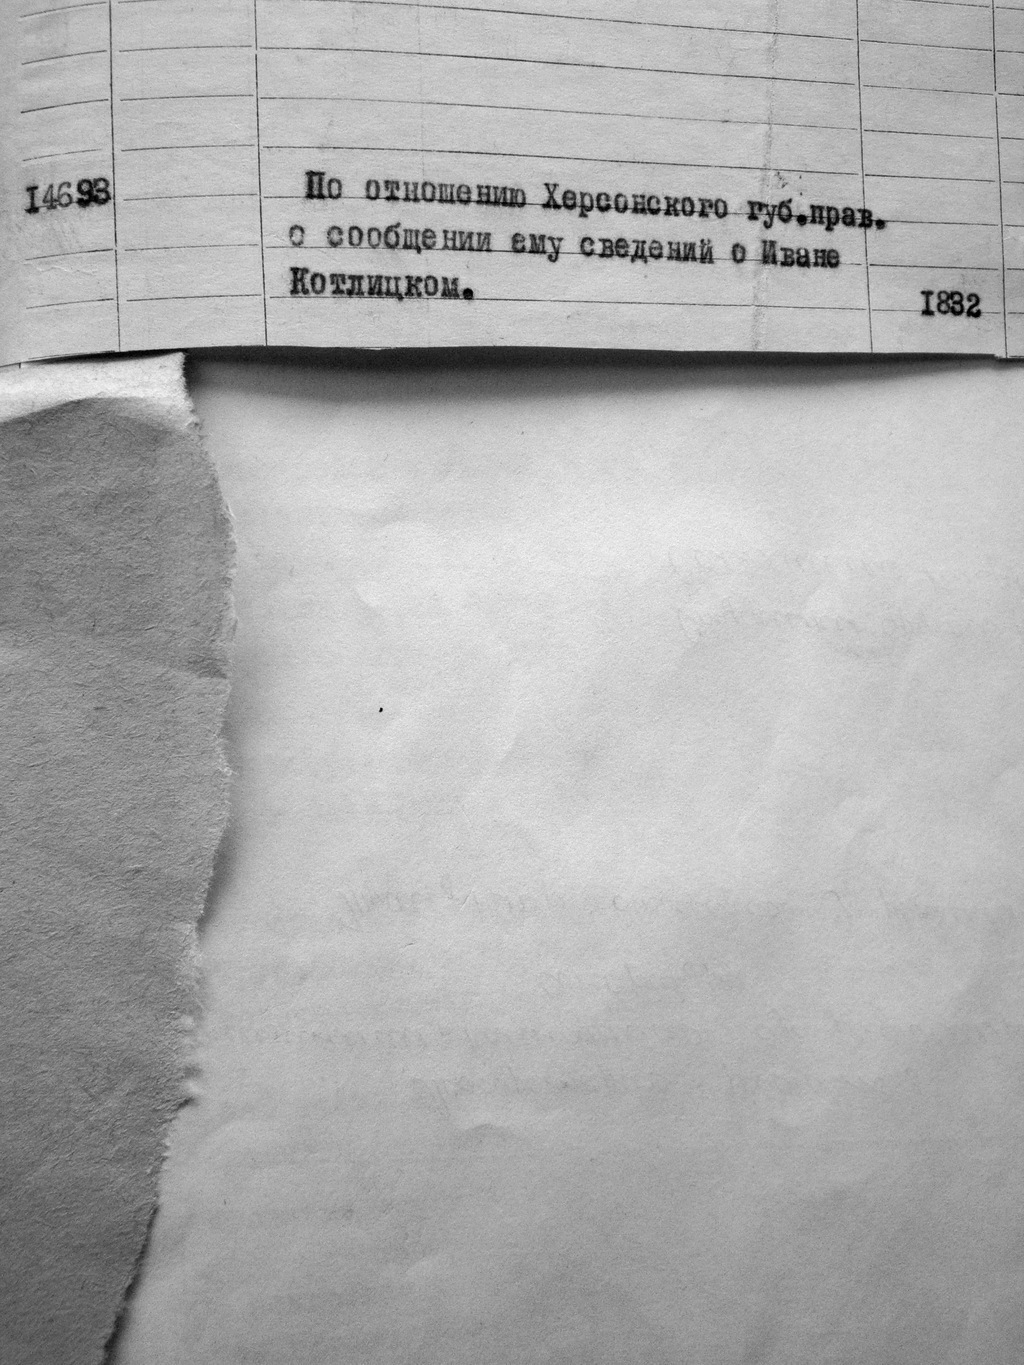 14693 По отношению Херсонского губ.прав.
о сообщении ему сведений о Иване
Котлицком. 1832